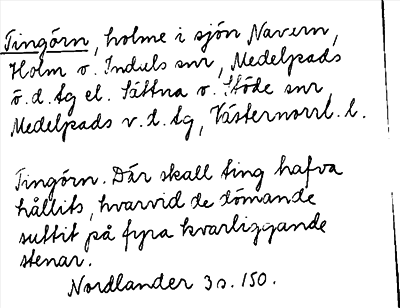 Tingörn, holme i sjön Navern,
Holm o. Induls snr, Medelpads
ö.d. tg el. Sättna o. Stöde snr
Medelpads v.d. tg, Västernorrl. l.
Tingörn. Där skall ting hafva
hållits, hvarvid de dömande
suttit på fyra kvarliggande
stenar.
Nordlander 3 s. 150.